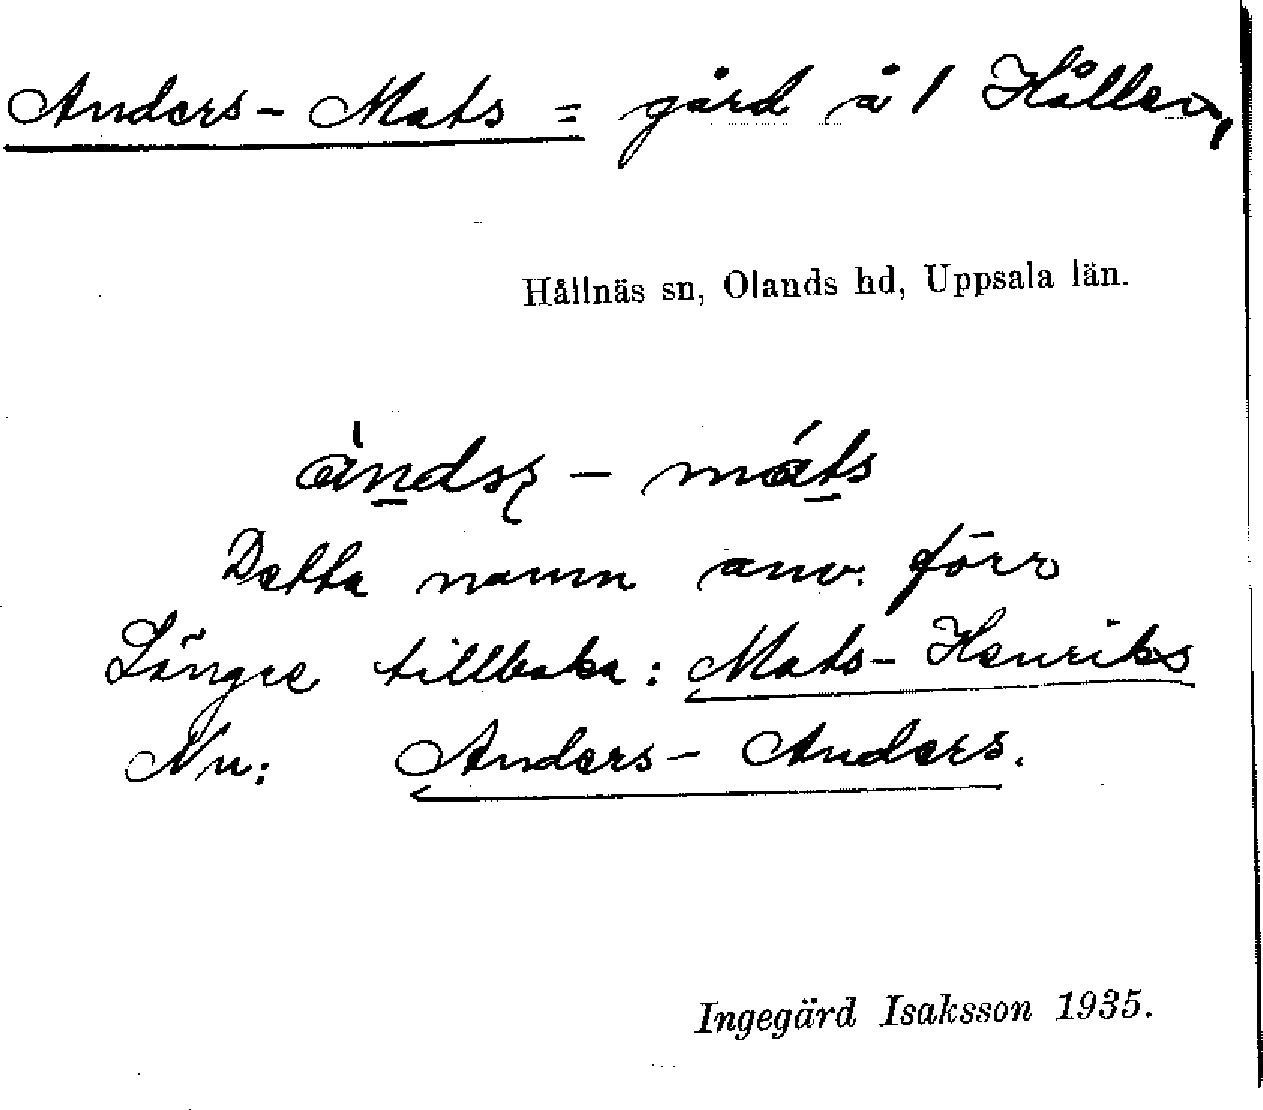 Anders-Mats = gård å 1 Hållen,
Hållnäs sn, Olands hd, Uppsala län.
àndsɀ - máts
Detta namn anv. förr
Längre tillbaka: Mats-Henriks
Nu: Anders-Anders.
Ingegärd Isaksson 1935.